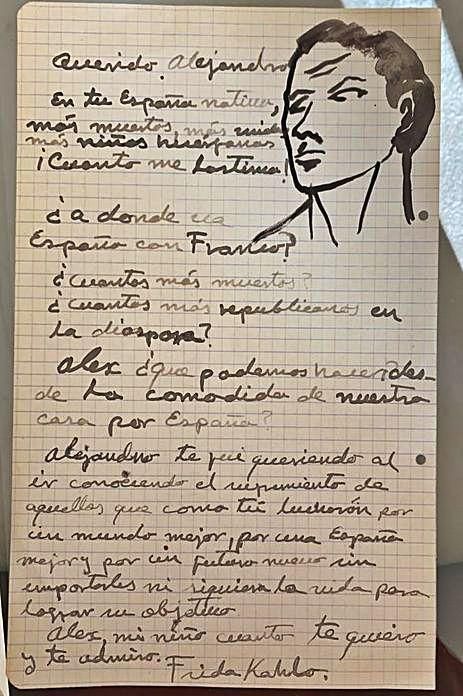 Querido Alejandro
En tu España nativa,
más muertos, más
más niños huérfanas
¡Cuanto me lastima!
¿a donde va
España con Franco?
¿Cuantos más muertos?
¿Cuantos más republicanos en
la diaspora?
Alex ¿que podemos hacer? des-
de la comodida de nuestra
casa por España?
Alejandro te fui queriendo al
ir conociendo el
aquellos que como tú lucharón por
un mundo mejor, por una España
mejor y por un futuro nuevo sin
importarles ni siquiera la vida para
lograr su objetivo
Alex, mi niño cuanto te quiero
y te admiro. Frida Kahlo.